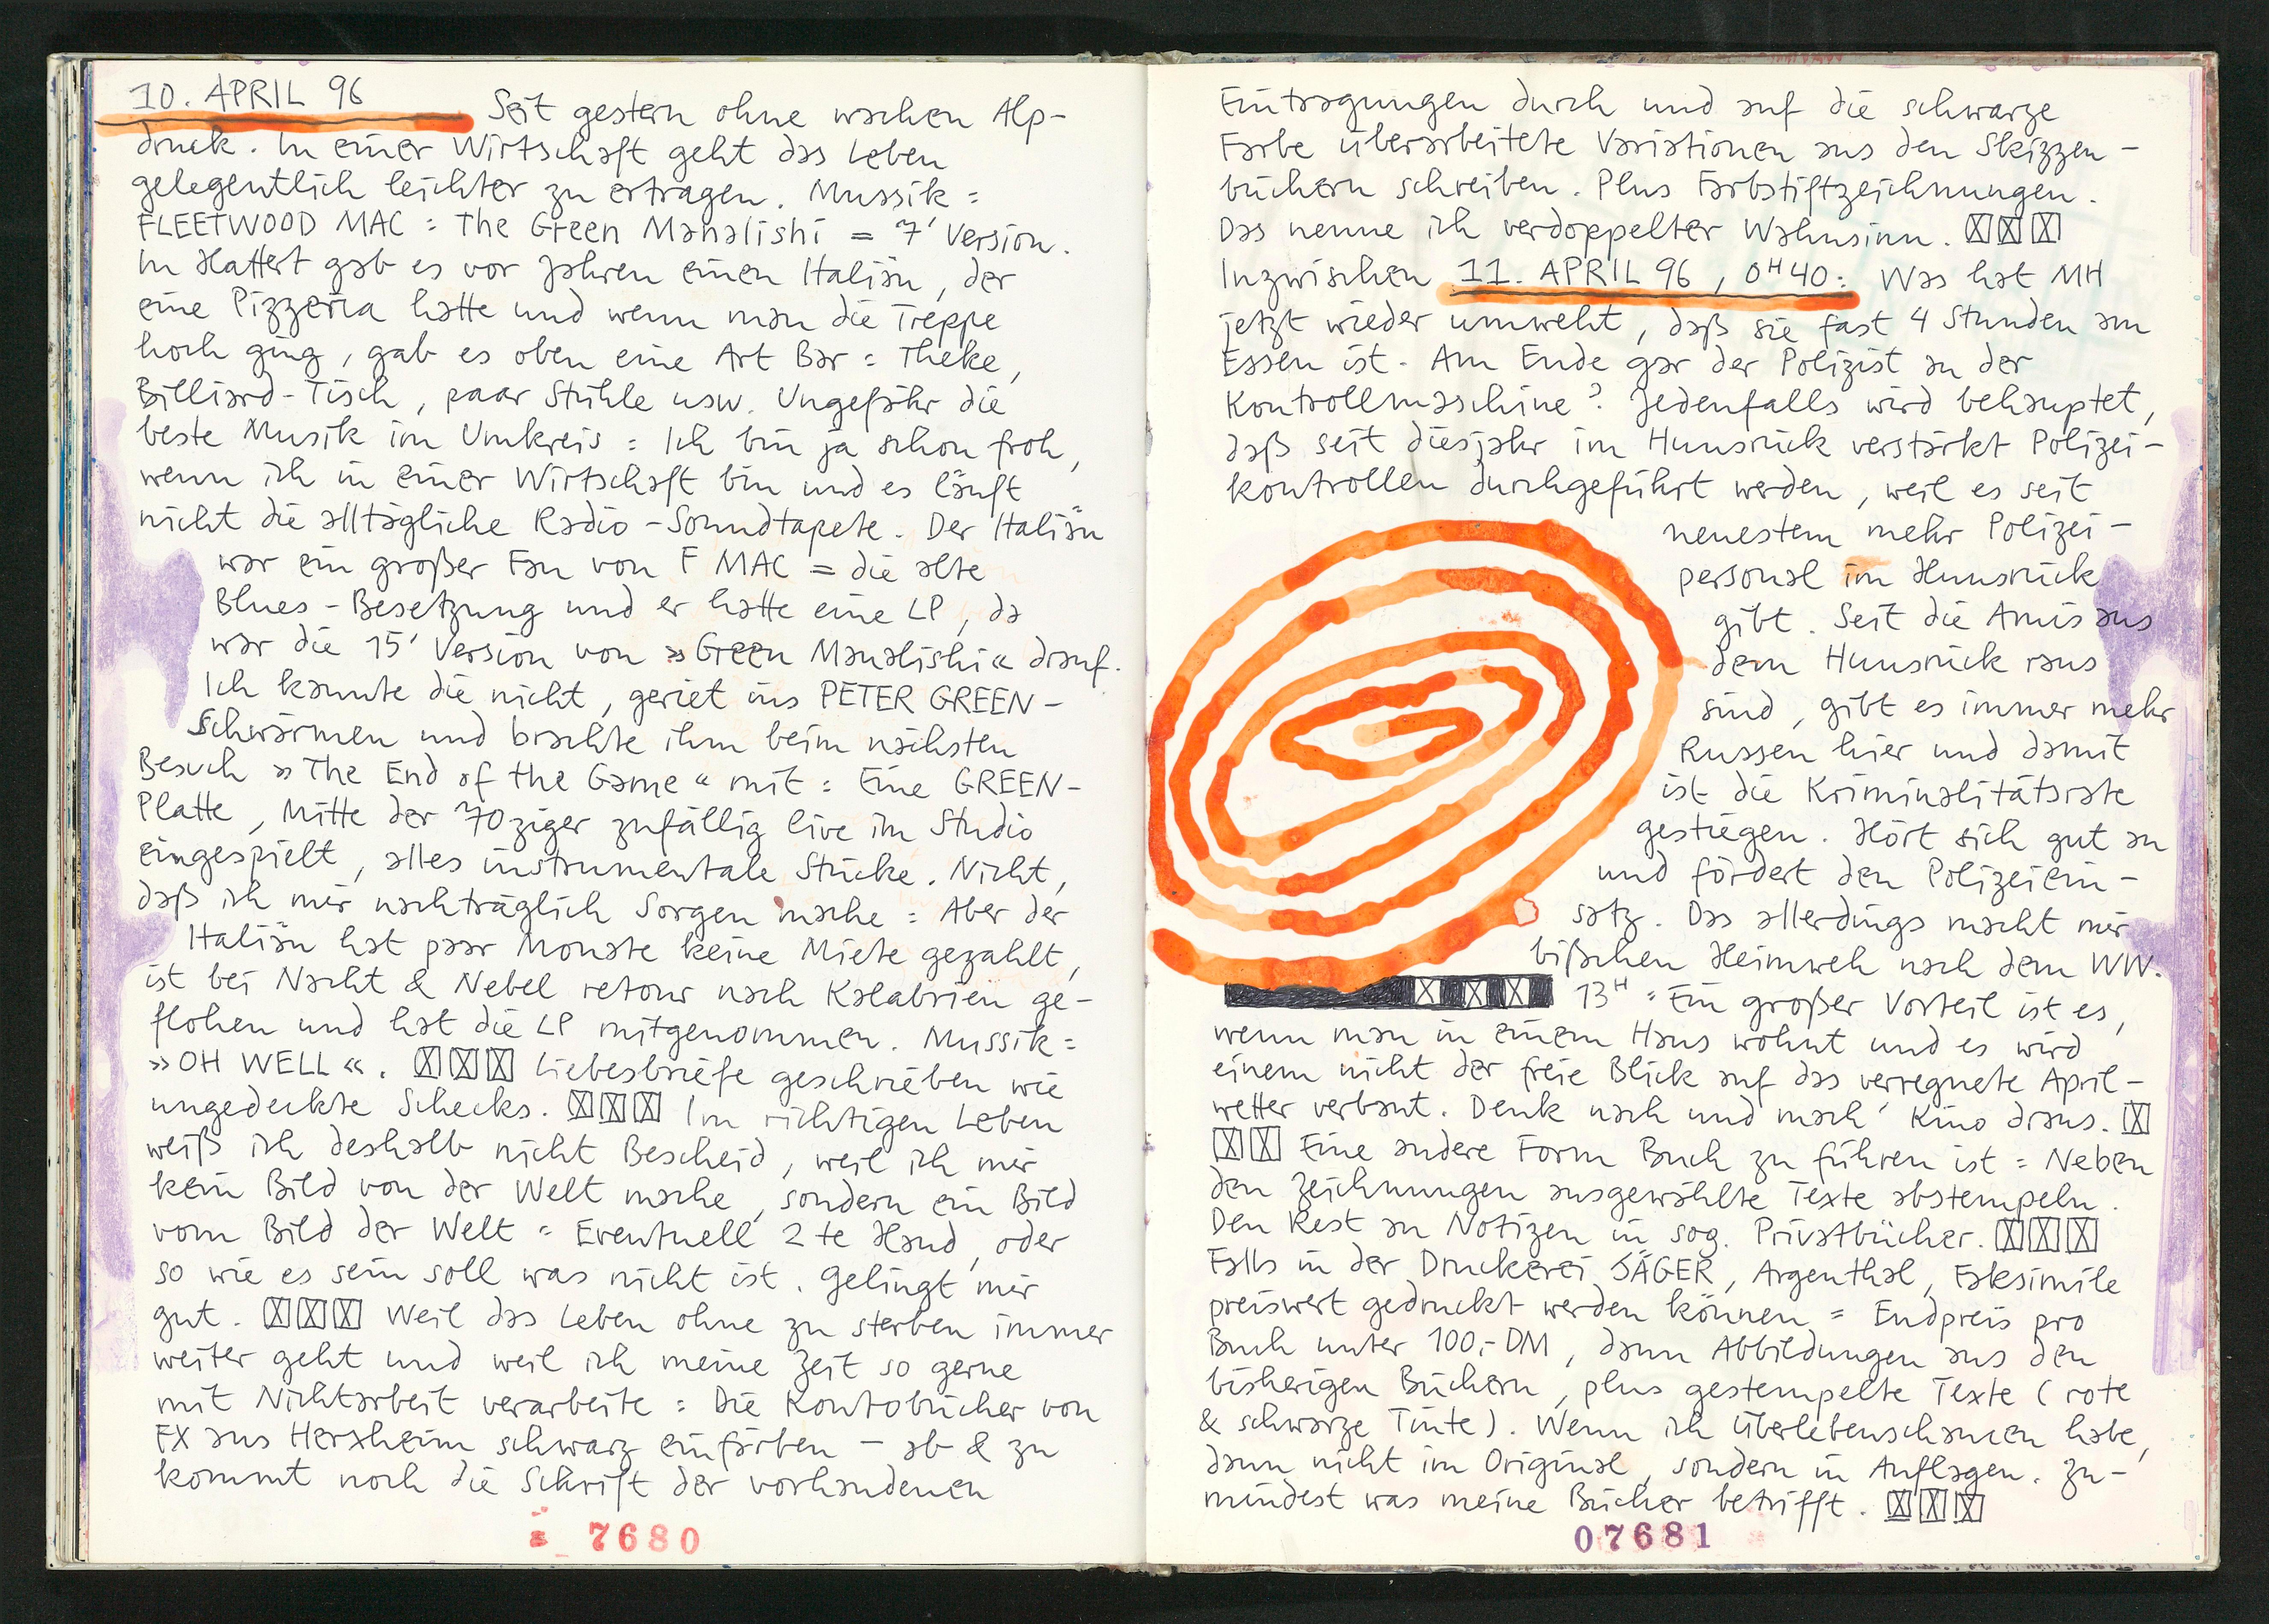 10. APRIL 96 Seit gestern ohne wachen Alp-
druck. In einer Wirtschaft geht das Leben
gelegentlich leichter zu ertragen. Mussik =
FLEETWOOD MAC = The Green Manalishi = 7' Version.
In Hattert gab es vor Jahren einen Italiän, der
eine Pizzeria hatte und wenn man die Treppe
hoch ging, gab es oben eine Art Bar = Theke,
Billiard-Tisch, paar Stühle usw. Ungefähr die
beste Musik im Umkreis = Ich bin ja schon froh,
wenn ich in einer Wirtschaft bin und es läuft
nicht die alltägliche Radio-Soundtapete. Der Italiän
war ein großer Fan von F MAC = die alte
Blues-Besetzung und er hatte eine LP, da
war die 15' Version von »Green Manalishi« drauf.
Ich kannte die nicht, geriet ins PETER GREEN-
Schwärmen und brachte ihm beim nächsten
Besuch »The End of the Game« mit = Eine GREEN-
Platte, Mitte der 70ziger zufällig live im Studio
eingespielt, alles instrumentale Stücke. Nicht,
daß ich mir nachträglich Sorgen mache = Aber der
Italiän hat paar Monate keine Miete gezahlt,
ist bei Nacht & Nebel retour nach Kalabrien ge-
flohen und hat die LP mitgenommen. Mussik =
»OH WELL«. ☒☒☒ Liebesbriefe geschrieben wie
ungedeckte Schecks. ☒☒☒ Im richtigen Leben
weiß ich deshalb nicht Bescheid, weil ich mir
kein Bild von der Welt mache, sondern ein Bild
vom Bild der Welt = Eventuell 2te Hand, oder
so wie es sein soll was nicht ist. Gelingt mir
gut. ☒☒☒ Weil das Leben ohne zu sterben immer
weiter geht und weil ich meine Zeit so gerne
mit Nichtarbeit verarbeite = Die Kontobücher von
FX aus Herxheim schwarz einfärben – ab & zu
kommt noch die Schrift der vorhandenen
7680
Eintragungen durch und auf die schwarze
Farbe überarbeitete Variationen aus den Skizzen-
büchern schreiben. Plus Farbstiftzeichnungen.
Das nenne ich verdoppelter Wahnsinn. ☒☒☒
Inzwischen 11. APRIL 96, 0H40: Was hat MH
jetzt wieder umweht, daß sie fast 4 Stunden am
Essen ist. Am Ende gar der Polizist an der
Kontrollmaschine? Jedenfalls wird behauptet,
daß seit diesjahr im Hunsrück verstärkt Polizei-
kontrollen durchgeführt werden, weil es seit
neuestem mehr Polizei-
personal im Hunsrück
gibt. Seit die Amis aus
dem Hunsrück raus
sind, gibt es immer mehr
Russen hier und damit
ist die Kriminalitätsrate
gestiegen. Hört sich gut an
und fördert den Polizeiein-
satz. Das allerdings macht mir
bißchen Heimweh nach dem WW.
☒☒☒ 13H = Ein großer Vorteil ist es,
wenn man in einem Haus wohnt und es wird
einem nicht der freie Blick auf das verregnete April-
wetter verbaut. Denk nach und mach' Kino draus. ☒
☒☒ Eine andere Form Buch zu führen ist = Neben
den Zeichnungen ausgewählte Texte abstempeln.
Den Rest an Notizen in sog. Privatbücher. ☒☒☒
Falls in der Druckerei SÄGER, Argenthal, Faksimile
preiswert gedruckt werden können = Endpreis pro
Buch unter 100,- DM, dann Abbildungen aus den
bisherigen Büchern, plus gestempelte Texte (rote
& schwarze Tinte). Wenn ich Überlebenschancen habe,
dann nicht im Original, sondern in Auflagen. Zu-
mindest was meine Bücher betrifft. ☒☒☒
07681